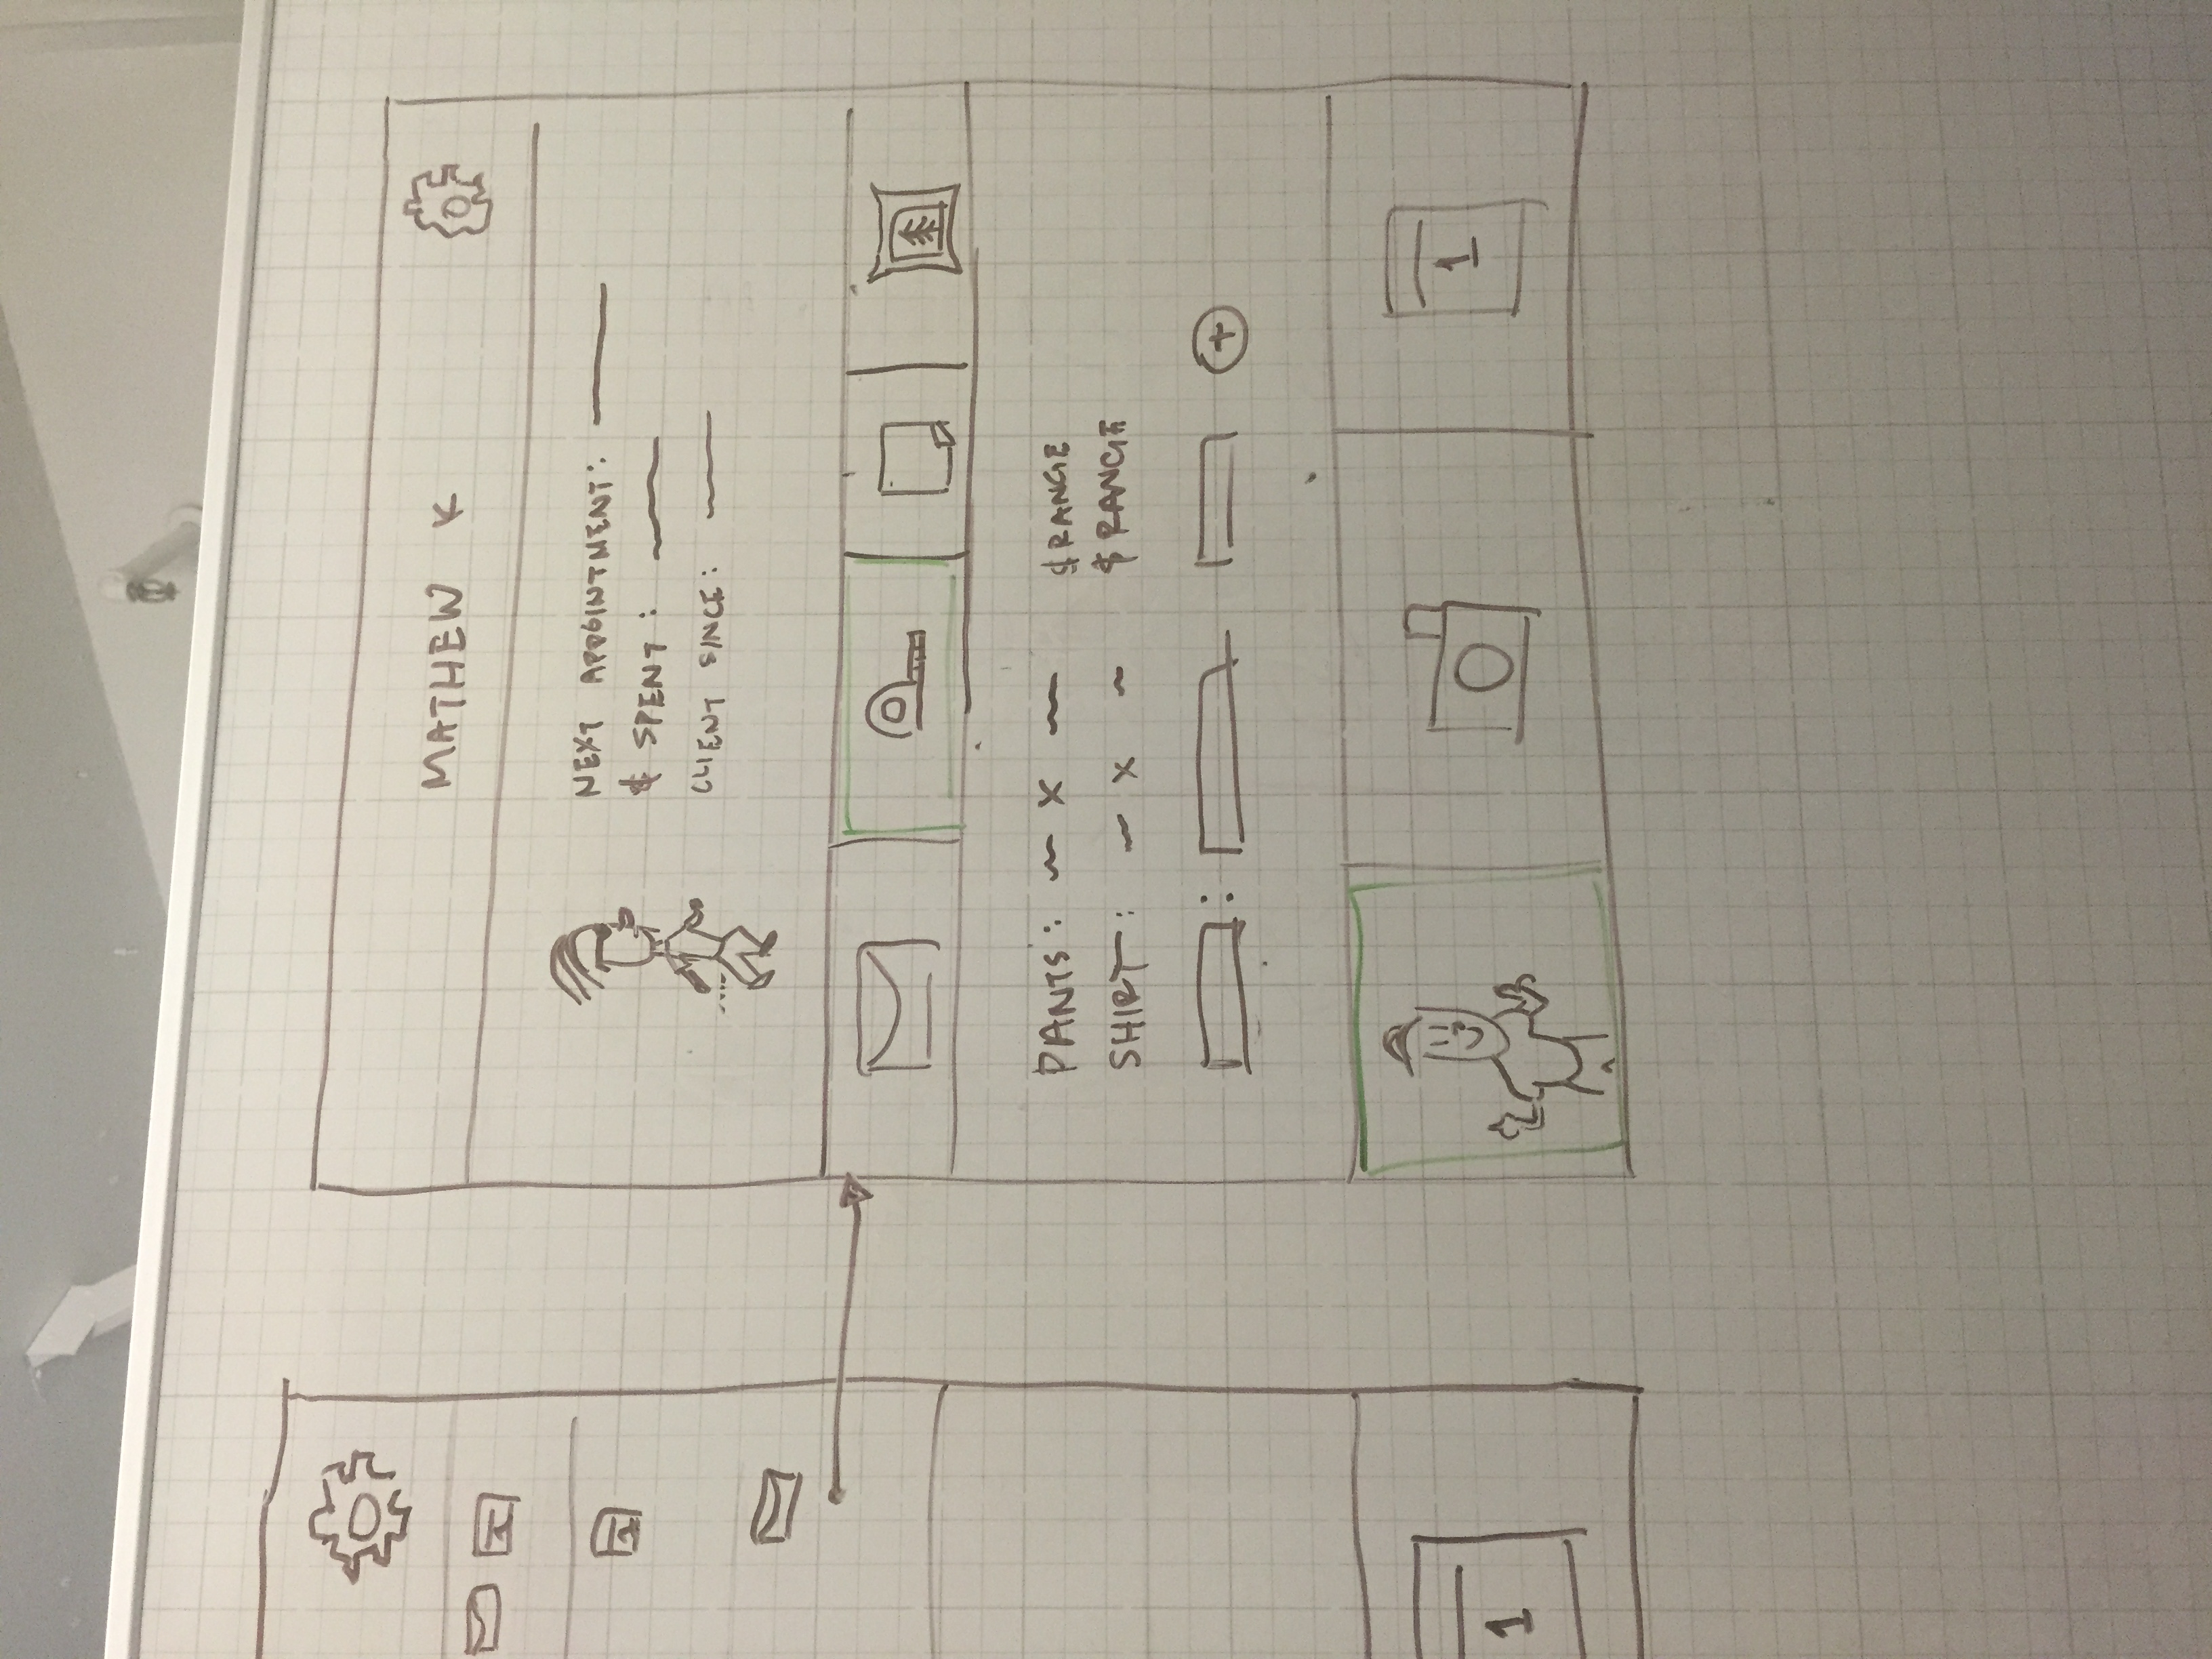 MATHEW K
NEXT APPOINTMENT:
$ SPENT:
CLIENT SINCE:
PANTS: x $RANGE
SHIRT: x $RANGE
:
+
1
1